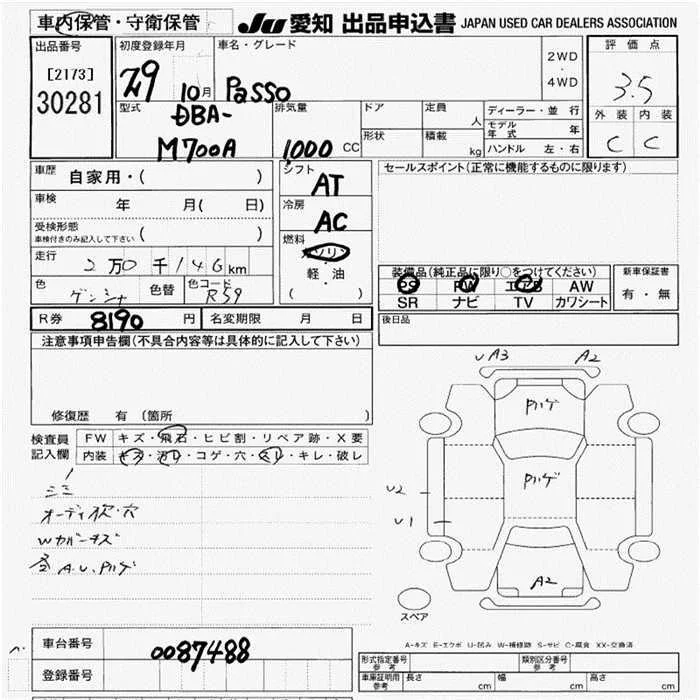 車内保管・守衛保管 JU 愛知 出品申込書 JAPAN USED CAR DEALERS ASSOCIATION
出品番号 初度登録年月 車名・グレード 評価点
[2173] 29 10月 Passo 2WD・4WD 3.5
30281 型式 DBA- 排気量 ドア 定員 人 ディーラー・並行 外装 内装
M700A 1,000 CC 形状 積載 kg モデル年式 年 C C
ハンドル 左・右
車歴 自家用・( ) シフト AT セールスポイント(正常に機能するものに限ります)
車検 年 月( 日) 冷房 AC
受検形態 ( )
車検付きのみ記入して下さい 燃料 ガソリン
走行 2万0千146km ・
軽・油 装備品(純正品に限り○をつけてください) 新車保証書
色 色替 色コード R59 ( ) PS PW エアB AW 有・無
SR ナビ TV カワシート
R券 8190 円 名変期限 月 日 後日品
注意事項申告欄(不具合内容等は具体的に記入して下さい)
修復歴 有 (箇所 )
UA3 A2
Pハゲ
Pハゲ
U2
U1
A2
スペア
検査員記入欄 FW キズ・飛石・ヒビ割・リペア跡・X要
内装 キズ・汚レ・コゲ・穴・スリ・キレ・破レ
オーディオ 穴
Wガバーキズ
A.U.Pハゲ
A-キズ E-エクボ U-凹み W-補修跡 S-サビ C-腐食 XX-交換済
車台番号 0087488
登録番号
形式指定番号 参考 類別区分番号 参考
車庫証明用 参考 長さ cm 幅 cm 高さ cm